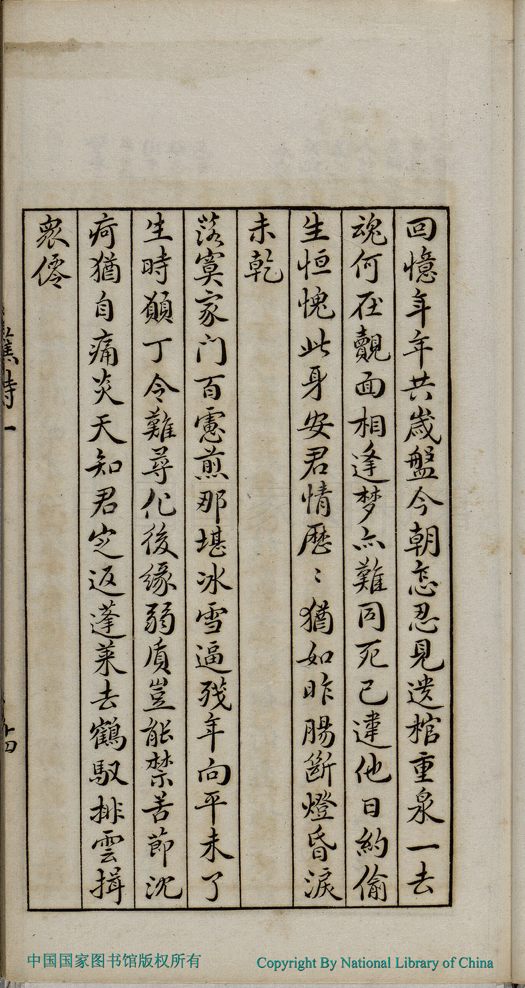 回憶年年共歲盤今朝怎忍見遺棺重泉一去
魂何在覿面相逢梦亦難同死已違他日約偷
生恒愧此身安君情歷〻猶如昨腸斷燈昏淚
未乾
落寞家门百慮煎那堪冰雪逼殘年向平未了
生時願丁令難尋化後緣弱質豈能禁苦節沈
疴猶自痛炎天知君定返蓬萊去鶴馭排雲揖
眾僊
蕉詩一
十四
中国国家图书馆版权所有
Copyright By National Library of China